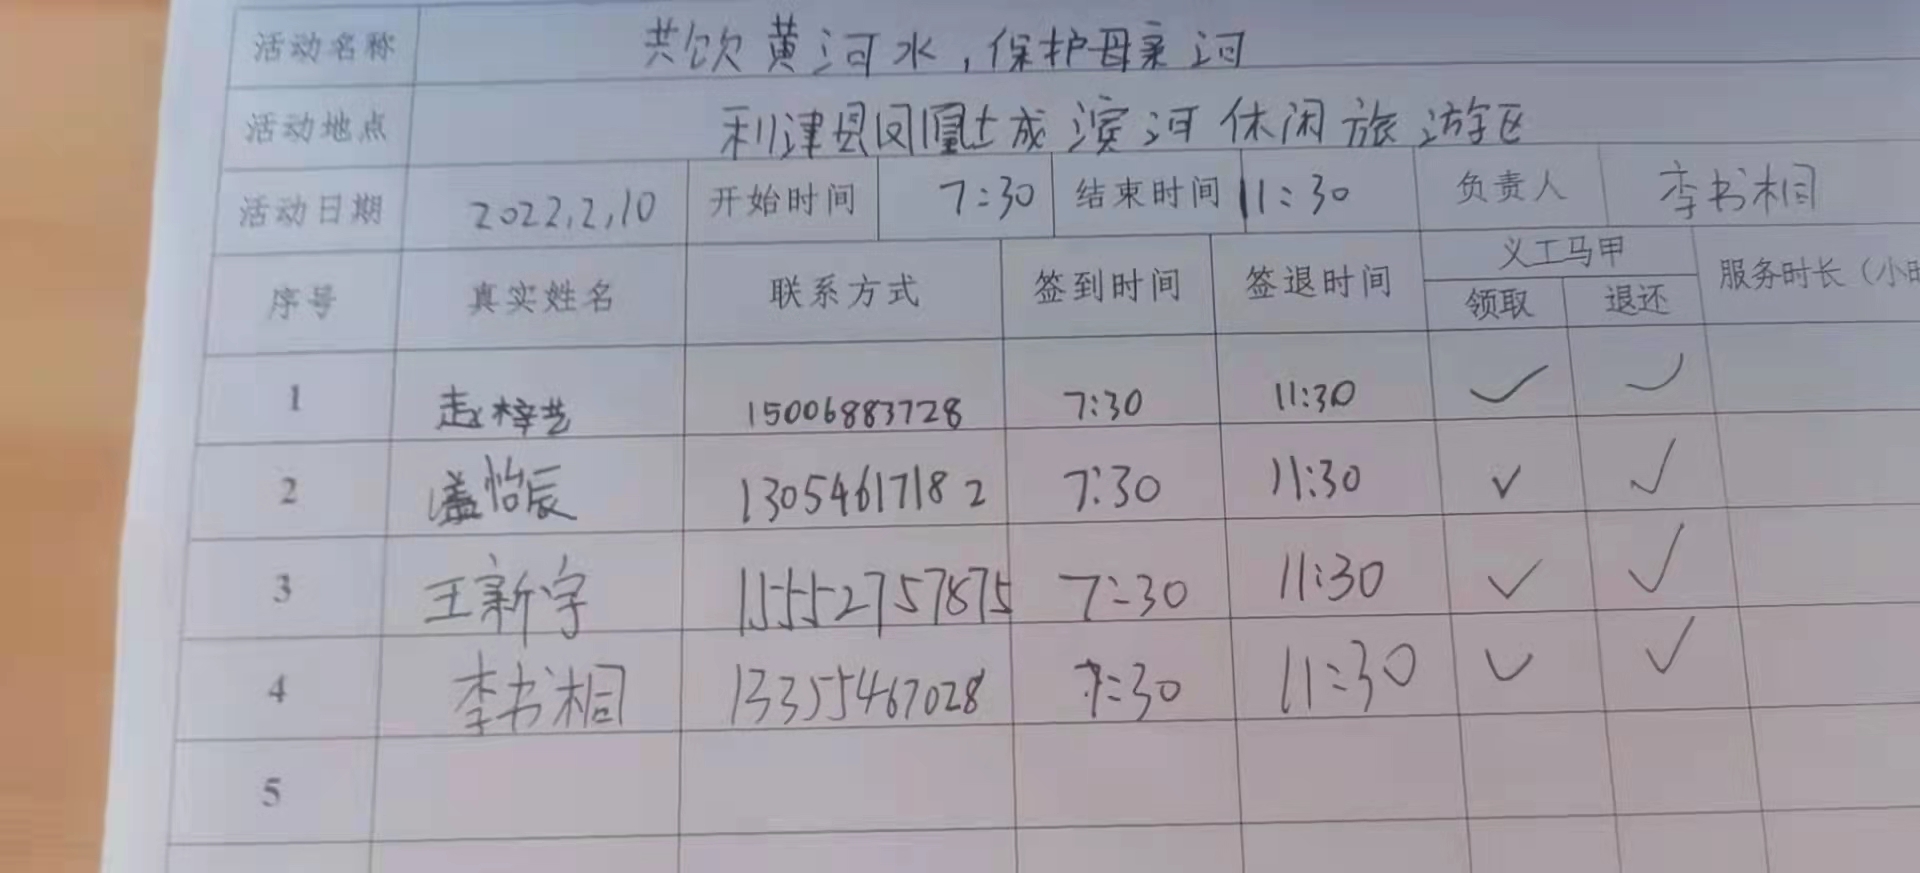 活动名称 共饮黄河水，保护母亲河
活动地点 利津县凤凰城滨河休闲旅游区
活动日期 2022.2.10 开始时间 7:30 结束时间 11:30 负责人 李书桐
序号 真实姓名 联系方式 签到时间 签退时间 义工马甲 服务时长（小时
领取 退还
1 赵梓艺 15006883728 7:30 11:30 ✓ ✓
2 怡辰 13054617182 7:30 11:30 ✓ ✓
3 王新宇 15552757875 7:30 11:30 ✓ ✓
4 李书桐 13355467028 7:30 11:30 ✓ ✓
5